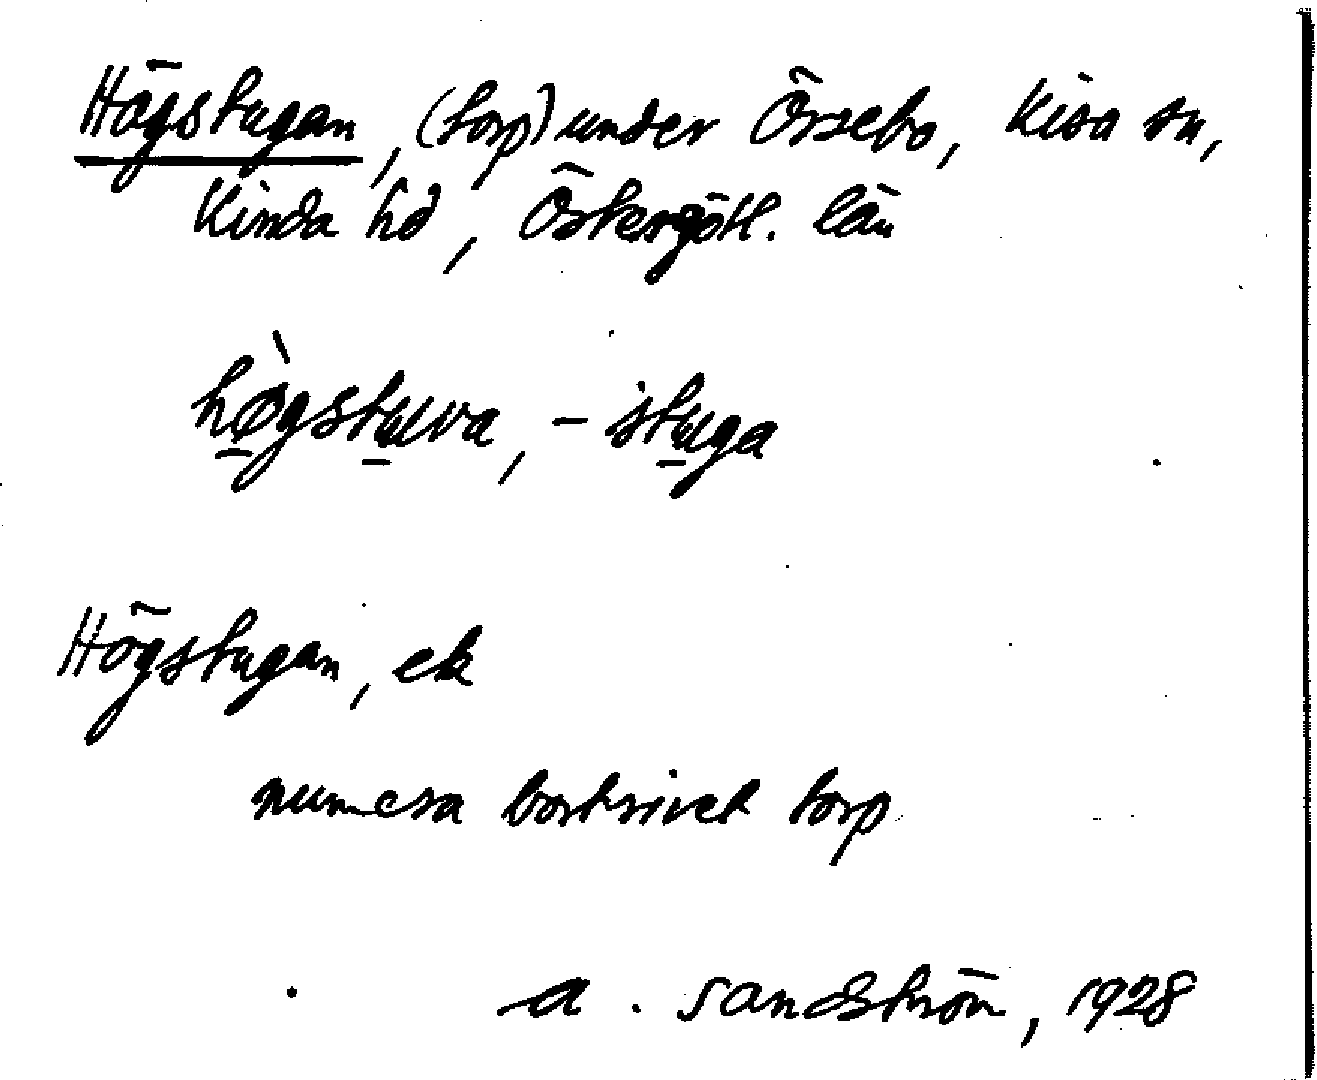 Högstugan, (torp) under Örsebo, Kisa sn,
Kinda hd, Östergötl. län
hø̀gstuva, -stuga
Högstugan, ek
numera bortrivet torp
A. Sandström, 1928